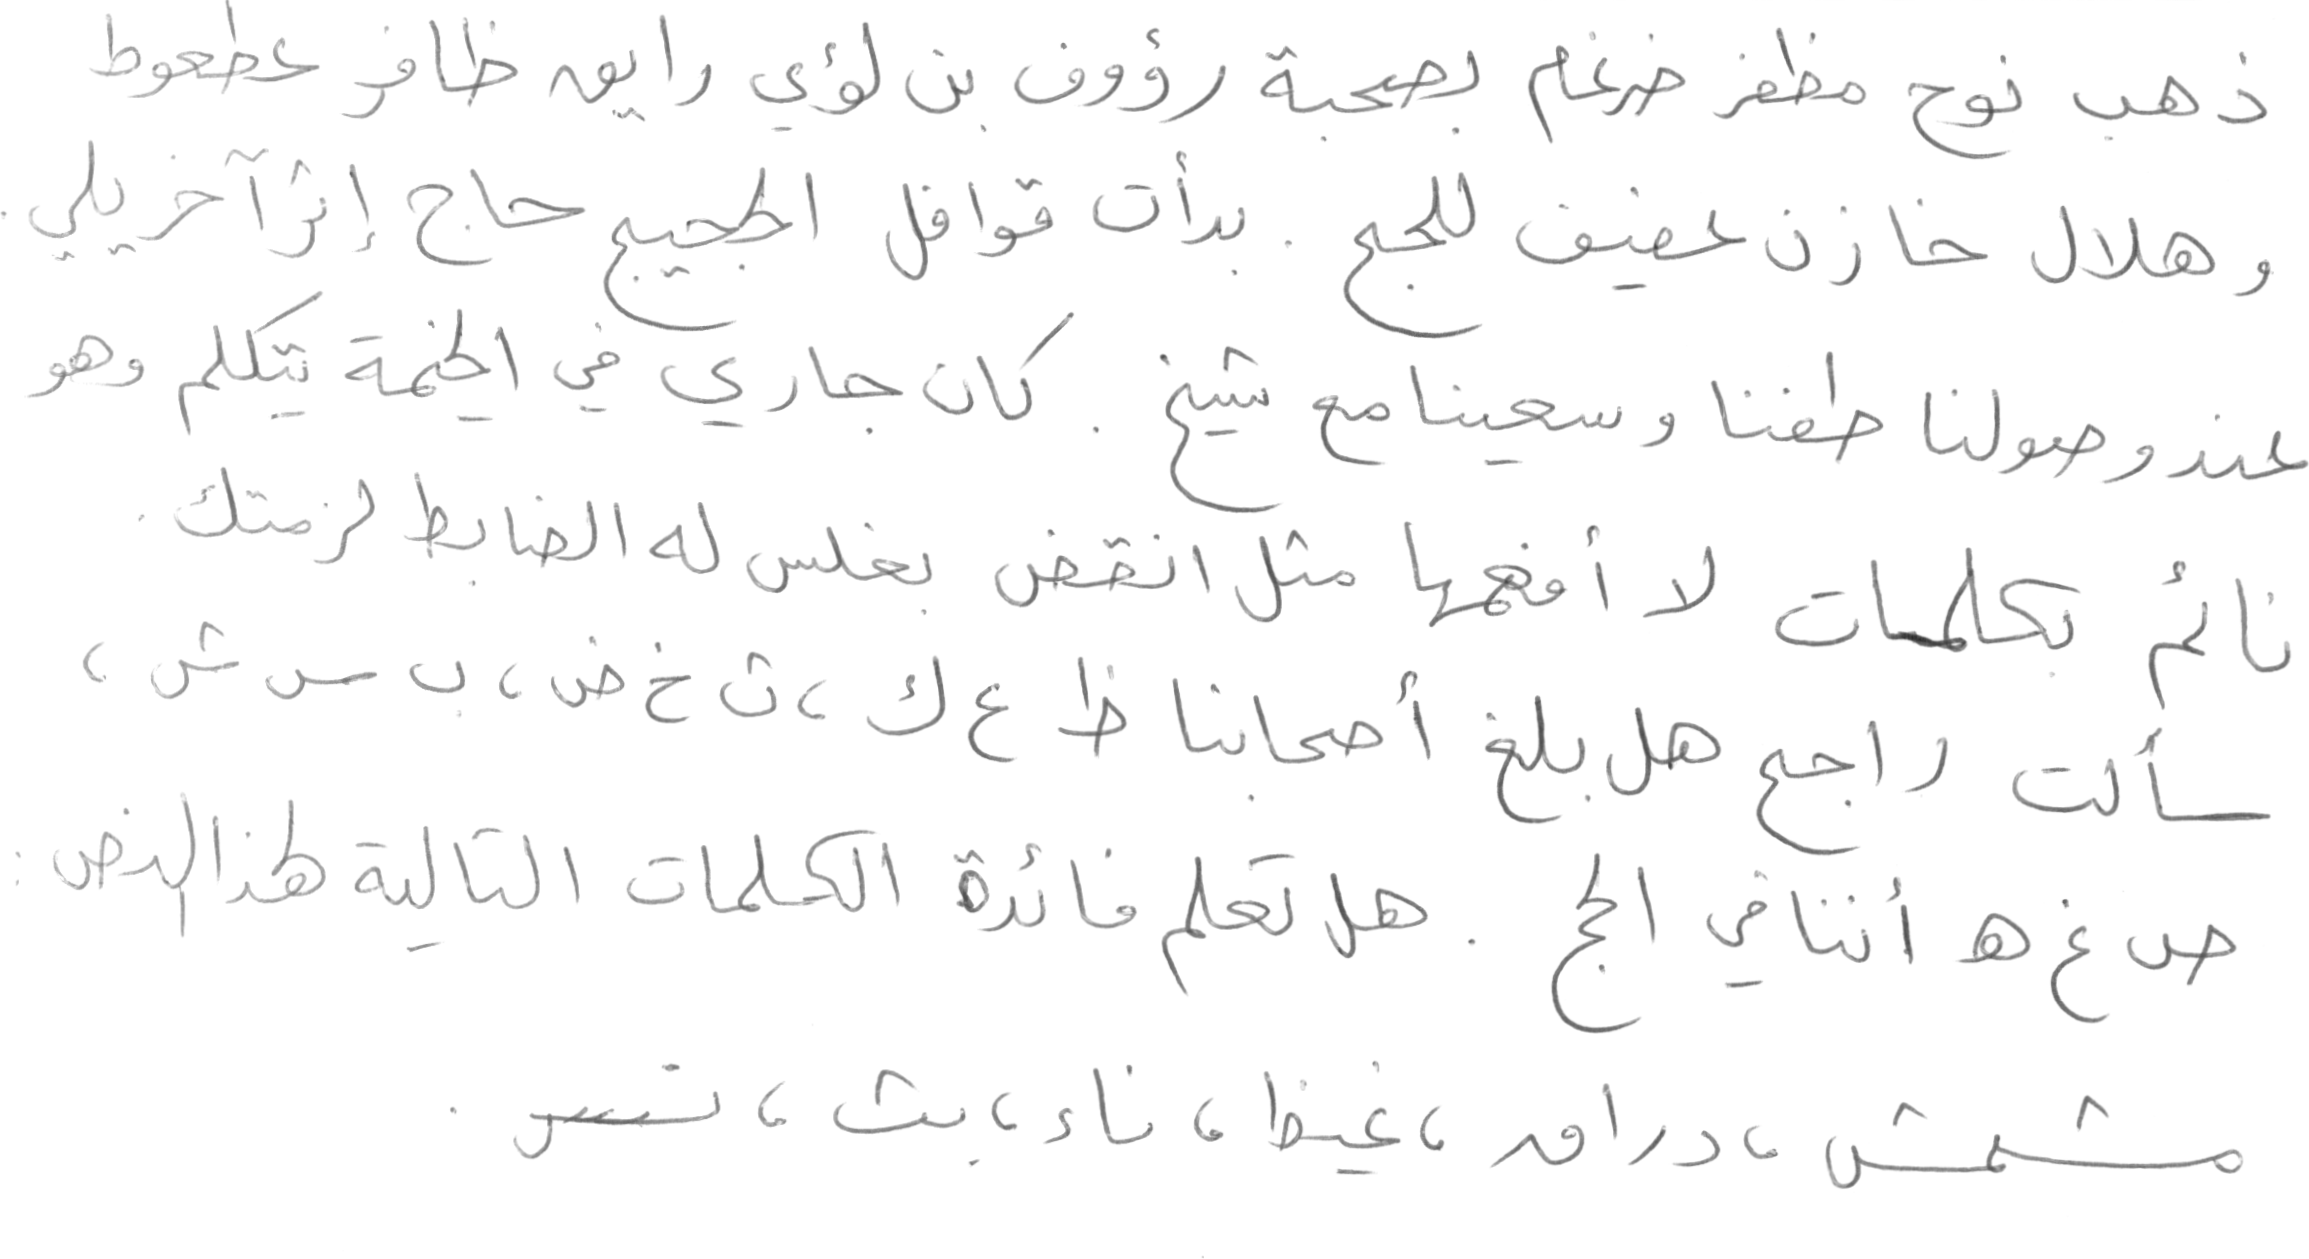 ذهب نوح مظفر ضرغام بصحبة رؤوف بن لؤي رايق ظافر عطعوط
وهلال خازن عفيف للحج . بدأت قوافل الحجيج حاج إثر آخر يلي .
عند وصولنا طفنا وسعينا مع شيخ . كان جاري في الخيمة يتكلم وهو
نائم بكلمات لا أفهمها مثل انقض بغلس له الضابط لزمتك .
سألت راجع هل بلغ أصحابنا ظ ع ك ، ث خ ض ، ب س ش ،
ص غ ه أننا في الحج . هل تعلم فائدة الكلمات التالية لهذا النص :
مشمش ، دراق ، غيظ ، ناء ، بث ، تسر .